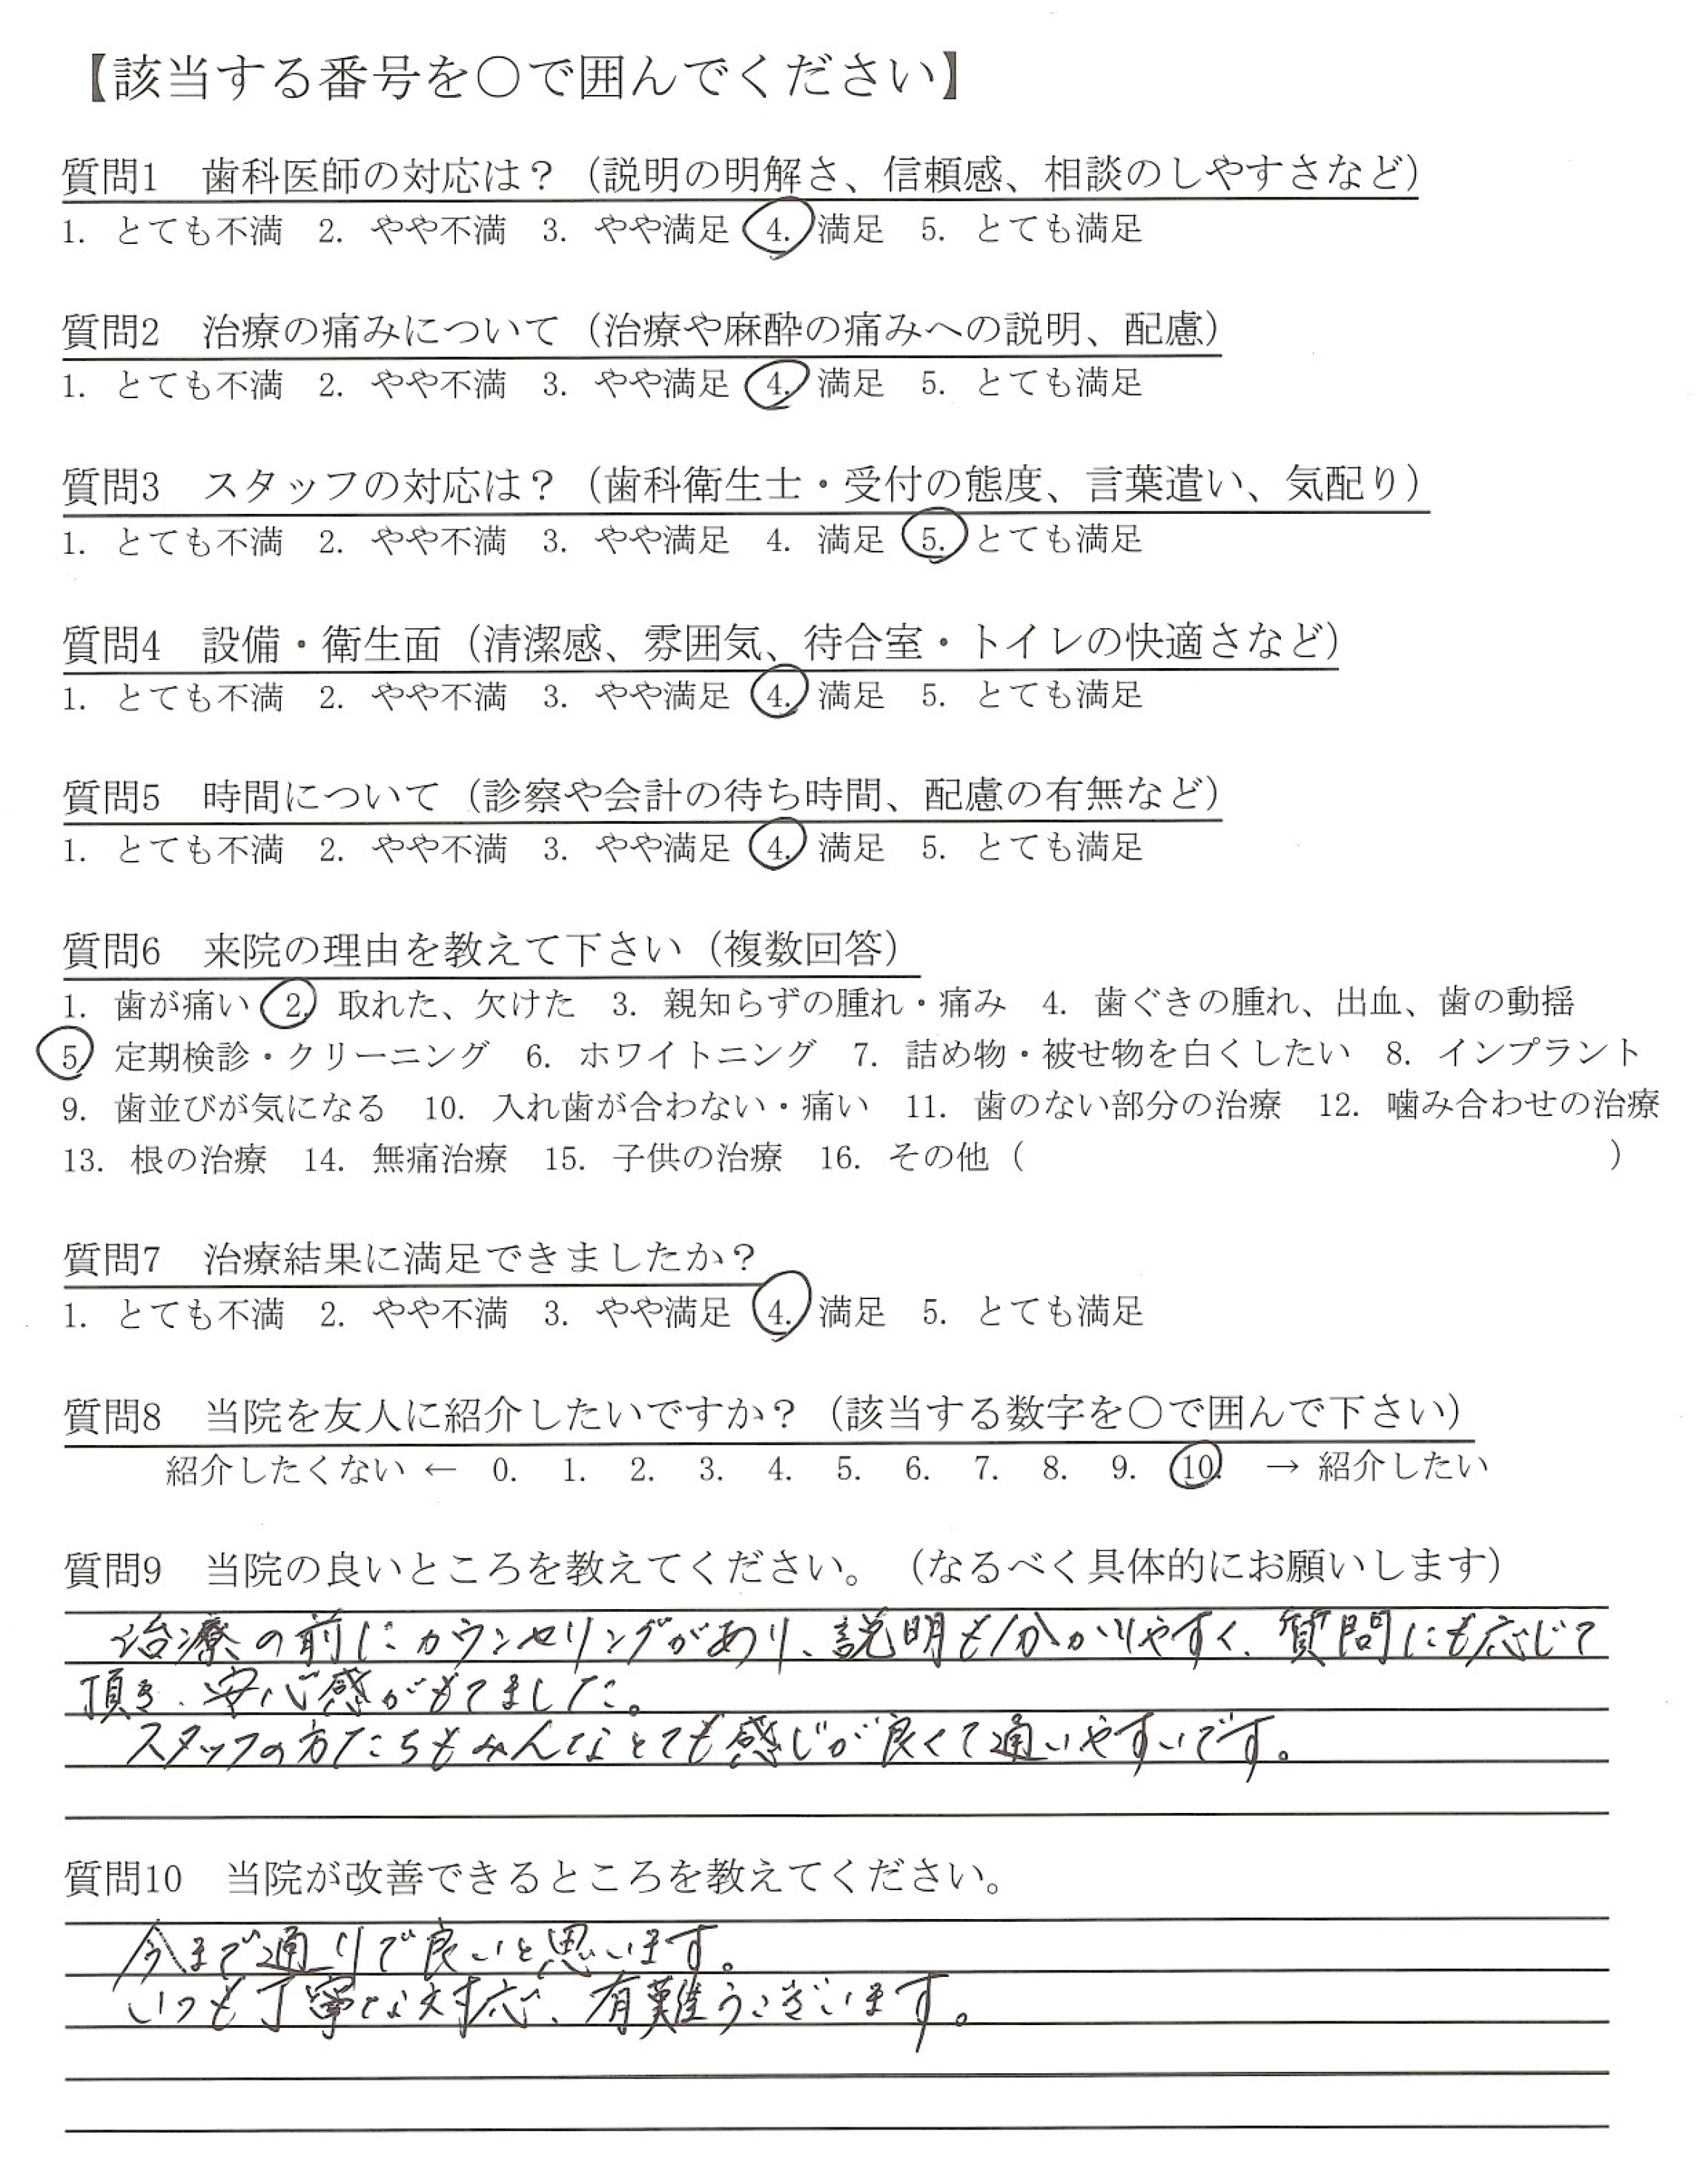 【該当する番号を○で囲んでください】
質問1　歯科医師の対応は？（説明の明解さ、信頼感、相談のしやすさなど）
1. とても不満　2. やや不満　3. やや満足　4. 満足　5. とても満足
質問2　治療の痛みについて（治療や麻酔の痛みへの説明、配慮）
1. とても不満　2. やや不満　3. やや満足　4. 満足　5. とても満足
質問3　スタッフの対応は？（歯科衛生士・受付の態度、言葉遣い、気配り）
1. とても不満　2. やや不満　3. やや満足　4. 満足　5. とても満足
質問4　設備・衛生面（清潔感、雰囲気、待合室・トイレの快適さなど）
1. とても不満　2. やや不満　3. やや満足　4. 満足　5. とても満足
質問5　時間について（診察や会計の待ち時間、配慮の有無など）
1. とても不満　2. やや不満　3. やや満足　4. 満足　5. とても満足
質問6　来院の理由を教えて下さい（複数回答）
1. 歯が痛い　2. 取れた、欠けた　3. 親知らずの腫れ・痛み　4. 歯ぐきの腫れ、出血、歯の動揺
5. 定期検診・クリーニング　6. ホワイトニング　7. 詰め物・被せ物を白くしたい　8. インプラント
9. 歯並びが気になる　10. 入れ歯が合わない・痛い　11. 歯のない部分の治療　12. 噛み合わせの治療
13. 根の治療　14. 無痛治療　15. 子供の治療　16. その他（　　　　　　　　　　）
質問7　治療結果に満足できましたか？
1. とても不満　2. やや不満　3. やや満足　4. 満足　5. とても満足
質問8　当院を友人に紹介したいですか？（該当する数字を○で囲んで下さい）
紹介したくない ← 0. 1. 2. 3. 4. 5. 6. 7. 8. 9. 10. → 紹介したい
質問9　当院の良いところを教えてください。（なるべく具体的にお願いします）
治療の前にカウンセリングがあり、説明も分かりやすく、質問にも応じて
頂き、安心感がもてました。
スタッフの方たちもみんなとても感じが良くて通いやすいです。
質問10　当院が改善できるところを教えてください。
今まで通りで良いと思います。
いつも丁寧な対応、有難うございます。